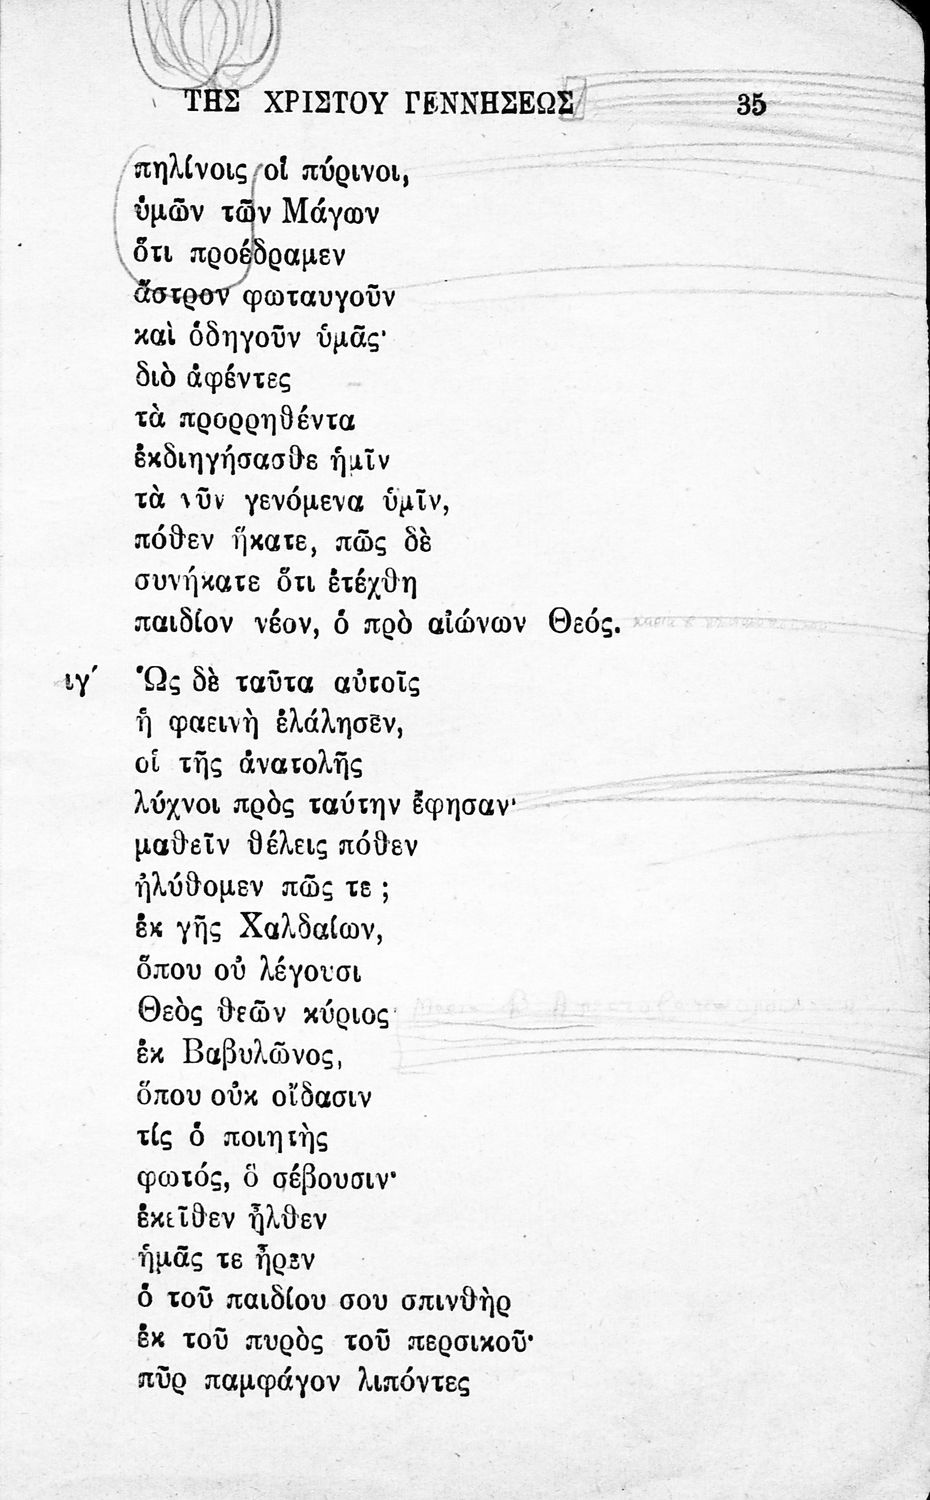 ΤΗΣ ΧΡΙΣΤΟΥ ΓΕΝΝΗΣΕΩΣ 35
πηλίνοις οἱ πύρινοι,
ὑμῶν τῶν Μάγων
ὅτι προέδραμεν
ἄστρον φωταυγοῦν
καὶ ὁδηγοῦν ὑμᾶς·
διὸ ἀφέντες
τὰ προρρηθέντα
ἐκδιηγήσασθε ἡμῖν
τὰ νῦν γενόμενα ὑμῖν,
πόθεν ἥκατε, πῶς δὲ
συνήκατε ὅτι ἐτέχθη
παιδίον νέον, ὁ πρὸ αἰώνων Θεός.
ιγ΄ Ὡς δὲ ταῦτα αὐτοῖς
ἡ φαεινὴ ἐλάλησεν,
οἱ τῆς ἀνατολῆς
λύχνοι πρὸς ταύτην ἔφησαν·
μαθεῖν θέλεις πόθεν
ἠλύθομεν πῶς τε ;
ἐκ γῆς Χαλδαίων,
ὅπου οὐ λέγουσι
Θεὸς θεῶν κύριος·
ἐκ Βαβυλῶνος,
ὅπου οὐκ οἴδασιν
τίς ὁ ποιητὴς
φωτός, ὃ σέβουσιν·
ἐκεῖθεν ἦλθεν
ἡμᾶς τε ἦρεν
ὁ τοῦ παιδίου σου σπινθὴρ
ἐκ τοῦ πυρὸς τοῦ περσικοῦ·
πῦρ παμφάγον λιπόντες